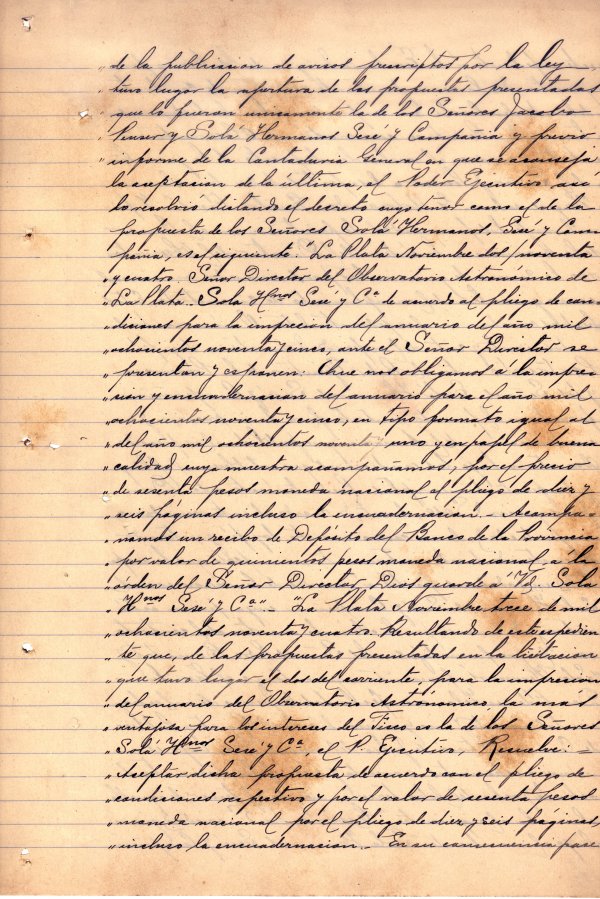 „ de la publicacion de avisos prescriptos por la ley
„ tuvo lugar la apertura de las propuestas presentadas
„ que lo fueron unicamente la de los Señores Jacobo
„ Peuser y Solá Hermanos Sesé y Compañia y previo
„ informe de la Contaduria General en que se aconseja
la aseptacion de la última, el Poder Ejecutivo asi
lo resolvió dictando el decreto cuyo tenor como el de la
propuesta de los Señores Solá Hermanos, Sesé y Com
pañia, es el siguiente: "La Plata Noviembre dos/noventa
„ y cuatro. Señor Director del Observatorio Astronómico de
„ La Plata. Sola Hnos Sesé y Ca de acuerdo al pliego de con„
„ diciones para la impresion del anuario del año mil
„ ochocientos noventa y cinco, ante el Señor Director se
„ presentan y esponen: Que nos obligamos á la impre
„ sion y encuadernacion del anuario para el año mil
„ ochocientos noventa y cinco, en tipo formato igual al
„ del año mil ochocientos noventa y uno y en papel de buena
„ calidad cuya muestra acompañamos, por el precio
„ de sesenta pesos moneda nacional el pliego de diez y
„ seis páginas incluso la encuadernacion.- Acompa„
„ ñamos un recibo de Depósito del Banco de la Provincia
„ por valor de quinientos pesos moneda nacional á la
„ órden del Señor Director. Dios guarde á Vd. Sola
„ Hnos Sesé y Ca"- "La Plata Noviembre trece de mil
„ ochocientos noventa y cuatro. Resultando de este espedien„
„ te que, de las propuestas presentadas en la licitacion
„ que tuvo lugar el dos del corriente, para la impresion
„ del anuario del Observatorio Astronómico, la más
„ ventajosa para los intereses del Fisco es la de los Señores
„ Solá Hnos Sesé y Ca, el P. Ejecutivo, Resuelve: -
„ Aceptar dicha propuesta de acuerdo con el pliego de
„ condiciones respectivo y por el valor de sesenta pesos
„ moneda nacional por el pliego de diez y seis paginas,
„ incluso la encuadernacion.- En su consecuencia pase